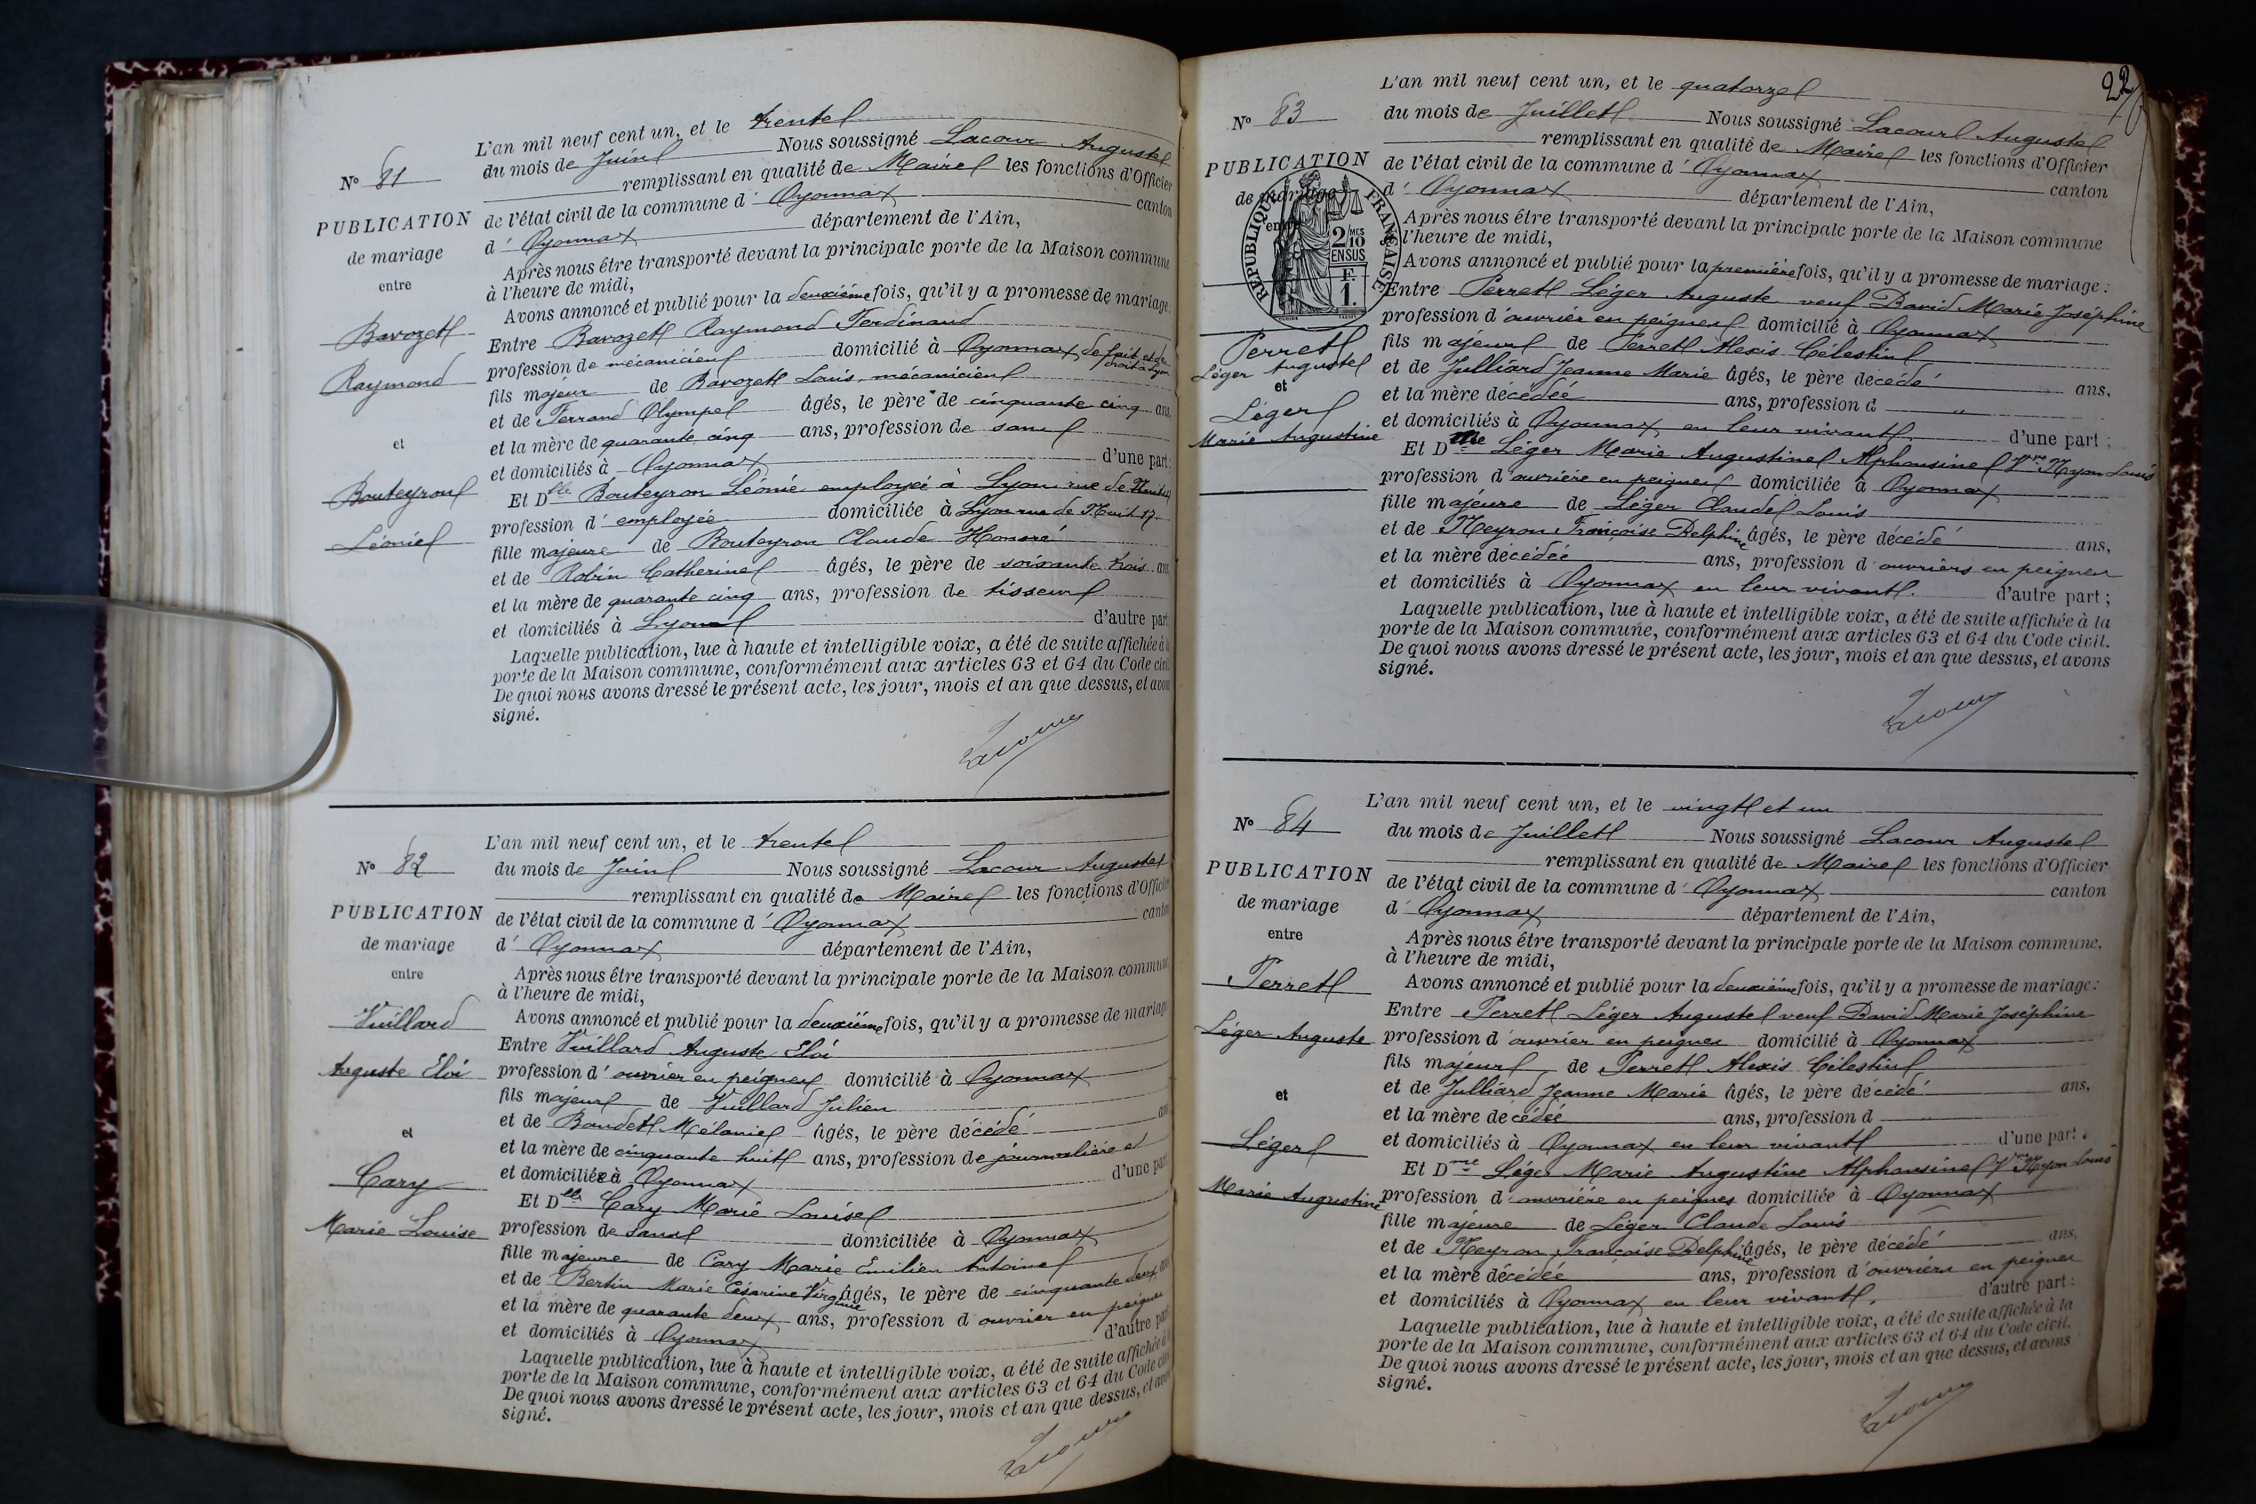 L'an mil neuf cent un, et le trente
du mois de Juin Nous soussigné Lacour Auguste
remplissant en qualité de Maire les fonctions d'Officier
de l'état civil de la commune d' Oyonnax canton
d' Oyonnax département de l'Ain,
Après nous être transporté devant la principale porte de la Maison commune
à l'heure de midi,
Avons annoncé et publié pour la deuxième fois, qu'il y a promesse de mariage
Entre Bavozet Raymond Ferdinand
profession de mécanicien domicilié à Oyonnax de fait et de droit à Lyon
fils majeur de Bavozet Louis, mécanicien
et de Ferrand Olympe âgés, le père de cinquante cinq ans
et la mère de quarante cinq ans, profession de sans
et domiciliés à Oyonnax d'une part:
Et Dlle Bouteyron Léonie employée à Lyon rue de
profession d' employée domiciliée à Lyon rue de Nuits 17
fille majeure de Bouteyron Claude Honoré
et de Robin Catherine âgés, le père de soixante trois ans
et la mère de quarante cinq ans, profession de tisseur
et domiciliés à Lyon d'autre part
Laquelle publication, lue à haute et intelligible voix, a été de suite affichée à la
porte de la Maison commune, conformément aux articles 63 et 64 du Code civil
De quoi nous avons dressé le présent acte, les jour, mois et an que dessus, et avons
signé.
Lacour
N° 81
PUBLICATION
de mariage
entre
Bavozet
Raymond
et
Bouteyron
Léonie
L'an mil neuf cent un, et le trente
du mois de Juin Nous soussigné Lacour Auguste
remplissant en qualité de Maire les fonctions d'Officier
de l'état civil de la commune d' Oyonnax canton
d' Oyonnax département de l'Ain,
Après nous être transporté devant la principale porte de la Maison commune
à l'heure de midi,
Avons annoncé et publié pour la deuxième fois, qu'il y a promesse de mariage
Entre Vuillard Auguste Eloi
profession d' ouvrier en peignes domicilié à Oyonnax
fils majeur de Vuillard Julien
et de Baudet Mélanie âgés, le père décédé ans
et la mère de cinquante huit ans, profession de journalière et
et domiciliée à Oyonnax d'une part
Et Dlle Cary Marie Louise
profession de sans domiciliée à Oyonnax
fille majeure de Cary Marie Emilien Antoine
et de Bertin Marie Césarine Virginie âgés, le père de cinquante deux ans
et la mère de quarante deux ans, profession d' ouvrier en peignes
et domiciliés à Oyonnax d'autre part
Laquelle publication, lue à haute et intelligible voix, a été de suite affichée à la
porte de la Maison commune, conformément aux articles 63 et 64 du Code civil
De quoi nous avons dressé le présent acte, les jour, mois et an que dessus, et avons
signé.
Lacour
N° 82
PUBLICATION
de mariage
entre
Vuillard
Auguste Eloi
et
Cary
Marie Louise
22
L'an mil neuf cent un, et le quatorze
du mois de Juillet Nous soussigné Lacour Auguste
remplissant en qualité de Maire les fonctions d'Officier
de l'état civil de la commune d' Oyonnax canton
d' Oyonnax département de l'Ain,
Après nous être transporté devant la principale porte de la Maison commune
à l'heure de midi,
Avons annoncé et publié pour la première fois, qu'il y a promesse de mariage:
Entre Perret Léger Auguste veuf David Marie Joséphine
profession d' ouvrier en peignes domicilié à Oyonnax
fils majeur de Perret Alexis Célestin
et de Julliard Jeanne Marie âgés, le père décédé ans,
et la mère décédée ans, profession d "
et domiciliés à Oyonnax en leur vivant d'une part;
Et Dme Léger Marie Augustine Alphonsine Vve Neyon Louis
profession d' ouvrière en peignes domiciliée à Oyonnax
fille majeure de Léger Claude Louis
et de Neyron Françoise Delphine âgés, le père décédé ans,
et la mère décédée ans, profession d' ouvriers en peignes
et domiciliés à Oyonnax en leur vivant. d'autre part;
Laquelle publication, lue à haute et intelligible voix, a été de suite affichée à la
porte de la Maison commune, conformément aux articles 63 et 64 du Code civil.
De quoi nous avons dressé le présent acte, les jour, mois et an que dessus, et avons
signé.
Lacour
N° 83
PUBLICATION
de mariage
entre
RÉPUBLIQUE FRANÇAISE
2/10 MES
EN SUS
F.
1.
Perret
Léger Auguste
et
Léger
Marie Augustine
L'an mil neuf cent un, et le vingt et un
du mois de Juillet Nous soussigné Lacour Auguste
remplissant en qualité de Maire les fonctions d'Officier
de l'état civil de la commune d' Oyonnax canton
d' Oyonnax département de l'Ain,
Après nous être transporté devant la principale porte de la Maison commune,
à l'heure de midi,
Avons annoncé et publié pour la deuxième fois, qu'il y a promesse de mariage:
Entre Perret Léger Auguste veuf David Marie Joséphine
profession d' ouvrier en peignes domicilié à Oyonnax
fils majeur de Perret Alexis Célestin
et de Julliard Jeanne Marie âgés, le père décédé ans,
et la mère décédée ans, profession d
et domiciliés à Oyonnax en leur vivant d'une part;
Et Dme Léger Marie Augustine Alphonsine Vve Neyon Louis
profession d' ouvrière en peignes domiciliée à Oyonnax
fille majeure de Léger Claude Louis
et de Neyron Françoise Delphine âgés, le père décédé ans,
et la mère décédée ans, profession d' ouvriers en peignes
et domiciliés à Oyonnax en leur vivant. d'autre part:
Laquelle publication, lue à haute et intelligible voix, a été de suite affichée à la
porte de la Maison commune, conformément aux articles 63 et 64 du Code civil.
De quoi nous avons dressé le présent acte, les jour, mois et an que dessus, et avons
signé.
Lacour
N° 84
PUBLICATION
de mariage
entre
Perret
Léger Auguste
et
Léger
Marie Augustine